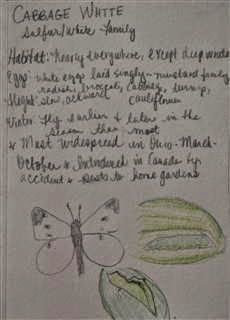 CABBAGE WHITE
Sulfur/White - Family
Habitat: Nearly everywhere, except deep woods
Eggs: white eggs laid singly - mustard family
radish, broccoli, cabbage, turnip,
Flight: slow, awkward cauliflower
Winter: fly earlier & later in the
season than most
Most widespread in Ohio - March -
October Introduced in Canada by
accident to home gardens